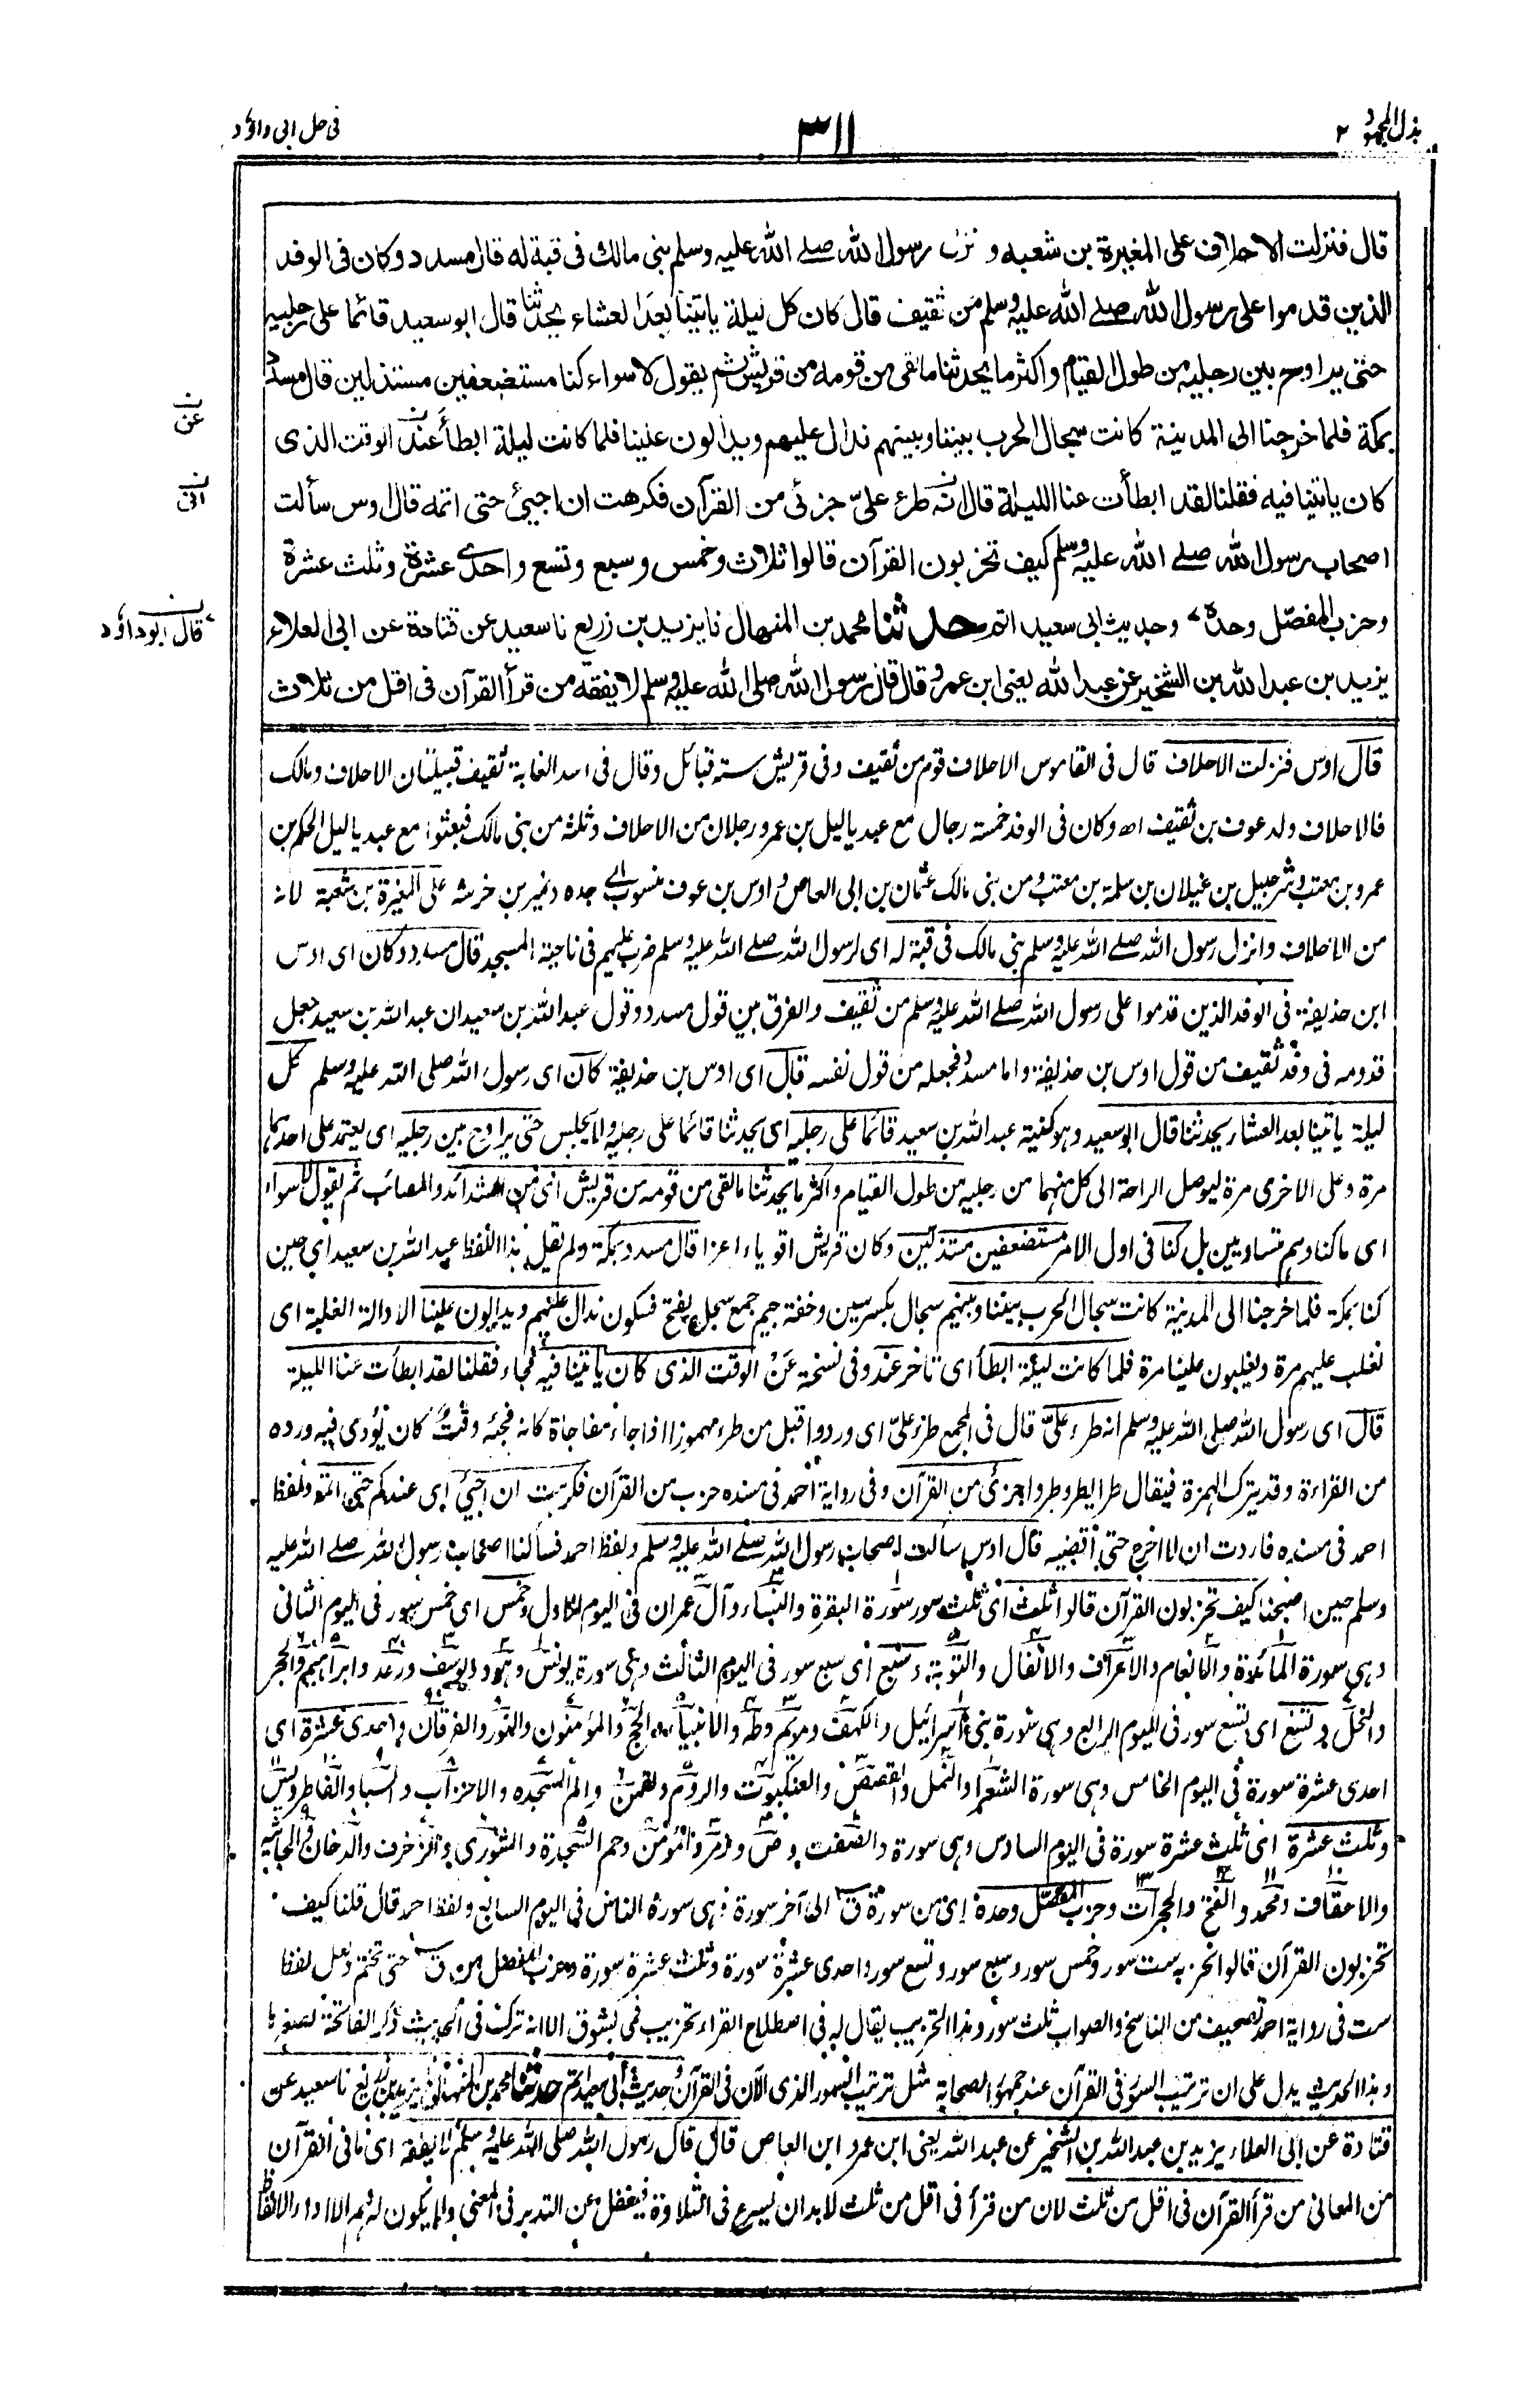 بذل المجهود ٢
٣١١
فى حل ابى داؤد
قال فنزلت الاحلاف على المغيرة بن شعبه و نزل رسول الله صلے الله عليه وسلم بنى مالك فى قبة له قال مسدد وكان فى الوفد
الذين قدموا على رسول الله صلے الله عليه وسلم من ثقيف قال كان كل ليلة ياتينا بعد العشاء يحدثنا قال ابو سعيد قائما على رجليه
حتى يراوح بين رجليه من طول القيام واكثر ما يحدثنا ما لقى من قومه من قريش ثم يقول لا سواء كنا مستضعفين مستذلين قال مسدد
بمكة فلما خرجنا الى المدينة كانت سجال الحرب بيننا وبينهم ندال عليهم ويدالون علينا فلما كانت ليلة ابطأ عند الوقت الذى
كان ياتينا فيه فقلنا لقد ابطأت عنا الليلة قال انه طرء علىّ جزئى من القرآن فكرهت ان اجيئ حتى اتمه قال اوس سألت
اصحاب رسول الله صلے الله عليه وسلم كيف تحزبون القرآن قالوا ثلاث وخمس وسبع وتسع واحدى عشرة وثلث عشرة
وحزب المفصّل وحده وحديث ابى سعيد اتم حدثنا محمد بن المنهال نا يزيد بن زريع نا سعيد عن قتادة عن ابى العلاء
يزيد بن عبد الله بن الشخير عن عبد الله يعنى ابن عمرو قال قال رسول الله صلى الله عليه وسلم لا يفقه من قرأ القرآن فى اقل من ثلاث
ن عن
ن انى
ن قال ابو داؤد
قال اوس فنزلت الاحلاف قال فى القاموس الاحلاف قوم من ثقيف وفى قريش ستة قبائل وقال فى اسد الغابة ثقيف قبيلتان الاحلاف ومالك
فالاحلاف ولد عوف بن ثقيف اھ وكان فى الوفد خمسة رجال مع عبد ياليل بن عمرو رجلان من الاحلاف وثلثة من بنى مالك فبعثوا مع عبد ياليل الحكم بن
عمرو بن معتب وشرحبيل بن غيلان بن سلمة بن معتب ومن بنى مالك عثمان بن ابى العاص و اوس بن عوف منسوب الى جده ونمير بن خرشه على المغيرة بن شعبة لانه
من الاحلاف وانزل رسول الله صلے الله عليه وسلم بنى مالك فى قبة له اى لرسول الله صلے الله عليه وسلم ضرب عليهم فى ناحية المسجد قال مسدد وكان اى اوس
ابن حذيفة فى الوفد الذين قدموا على رسول الله صلے الله عليه وسلم من ثقيف والفرق بين قول مسدد وقول عبد الله بن سعيد ان عبد الله بن سعيد جعل
قدومه فى وفد ثقيف من قول اوس بن حذيفة واما مسدد فجعله من قول نفسه قال اى اوس بن حذيفة كان اى رسول الله صلى الله عليه وسلم كل
ليلة ياتينا بعد العشاء يحدثنا قال ابو سعيد وهو كنية عبد الله بن سعيد قائما على رجليه اى يحدثنا قائما على رجليه ولا يجلس حتى يراوح بين رجليه اى يعتمد على احداهما
مرة وعلى الاخرى مرة ليوصل الراحة الى كل منهما من رجليه من طول القيام واكثر ما يحدثنا ما لقى من قومه من قريش اى من الشدائد والمصائب ثم يقول لا سواء
اى ما كنا وهم متساويين بل كنا فى اول الامر مستضعفين مستذلين وكان قريش اقوياء اعزا قال مسدد بمكة ولم يقل هذا اللفظ عبد الله بن سعيد اى حين
كنا بمكة فلما خرجنا الى المدينة كانت سجال الحرب بيننا وبينهم سجال بكسر سين وخفة جيم جمع سجل بفتح فسكون ندال عليهم ويدالون علينا الادالة الغلبة اى
نغلب عليهم مرة ويغلبون علينا مرة فلما كانت ليلة ابطأ اى تاخر عند وفى نسخة عَنْ الوقت الذى كان ياتينا فيه فجاء فقلنا لقد ابطأت عنا الليلة
قال اى رسول الله صلى الله عليه وسلم انه طرء علىّ قال فى المجمع طرء علىّ اى ورد واقبل من طرء مهموزا اذا جاء مفاجاة كانه فجئه وقت كان يؤدى فيه ورده
من القراءة وقد يترك الهمزة فيقال طرا يطرو طروا جزئى من القرآن وفى رواية احمد فى مسنده حزب من القرآن فكرهت ان اجيئ اى عندكم حتى اتمه ولفظ
احمد فى مسنده فاردت ان لا اخرج حتى اقضيه قال اوس سألت اصحاب رسول الله صلے الله عليه وسلم ولفظ احمد فسألنا اصحاب رسول الله صلے الله عليه
وسلم حين اصبحنا كيف تحزبون القرآن قالوا ثلث اى ثلث سور سورة البقرة والنساء وآل عمران فى اليوم الاول وخمس اى خمس سور فى اليوم الثانى
وهى سورة المائدة والانعام والاعراف والانفال والتوبة وسبع اى سبع سور فى اليوم الثالث وهى سورة يونس وهود ويوسف ورعد وابراهيم والحجر
والنحل وتسع اى تسع سور فى اليوم الرابع وهى سورة بنى اسرائيل والكهف ومريم وطه والانبياء والحج والمؤمنون والنور والفرقان واحدى عشرة اى
احدى عشرة سورة فى اليوم الخامس وهى سورة الشعراء والنمل والقصص والعنكبوت والروم ولقمن والم السجده والاحزاب والسبا والفاطر ويس
وثلث عشرة اى ثلث عشرة سورة فى اليوم السادس وهى سورة والصفت وص وزمر والمؤمن وحم السجدة والشورى والزخرف والدخان والجاثية
والاحقاف ومحمد والفتح والحجرات وحزب المفصّل وحدة اى من سورة ق الى آخر سورة وهى سورة الناس فى اليوم السابع ولفظ احمد قال قلنا كيف
تحزبون القرآن قالوا نحزبه ست سور وخمس سور وسبع سور وتسع سور واحدى عشرة سورة وثلث عشرة سورة وحزب المفصل من ق حتى تختم ولعل لفظ
ست فى رواية احمد تصحيف من الناسخ والصواب ثلث سور وهذا التحزيب يقال له فى اصطلاح القراء تحزيب فمى بشوق الا انه تركت فى الحديث ذكر الفاتحة لصغرها
وهذا الحديث يدل على ان ترتيب السور فى القرآن عند جمهور الصحابة مثل ترتيب السور الذى الآن فى القرآن وحديث ابى سعيد اتم حدثنا محمد بن المنهال نا يزيد بن زريع نا سعيد عن
قتادة عن ابى العلاء يزيد بن عبد الله بن الشخير عن عبد الله يعنى ابن عمرو ابن العاص قال قال رسول الله صلى الله عليه وسلم لا يفقه اى ما فى القرآن
من المعانى من قرأ القرآن فى اقل من ثلث لان من قرأ فى اقل من ثلث لا بد ان يسرع فى التلاوة فيغفل عن التدبر فى المعنى ولا يكون له هم الا اداء الالفاظ